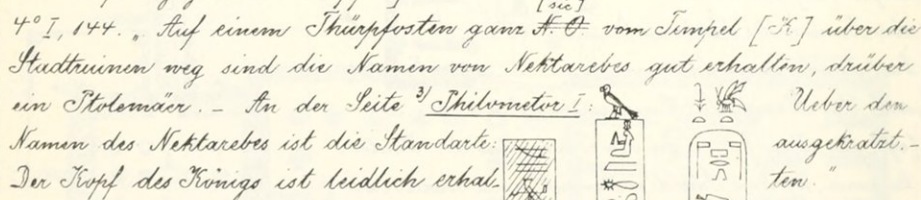 [sic]
4° I, 144. „ Auf einem Thürpfosten ganz N. O. vom Tempel [K] über die
Stadtruinen weg sind die Namen von Nektarebes gut erhalten, drüber
ein Ptolemäer. – An der Seite 3) Philometor I : Ueber den
Namen des Nektarebes ist die Standarte: ausgekratzt. –
Der Kopf des Königs ist leidlich erhal- ten."